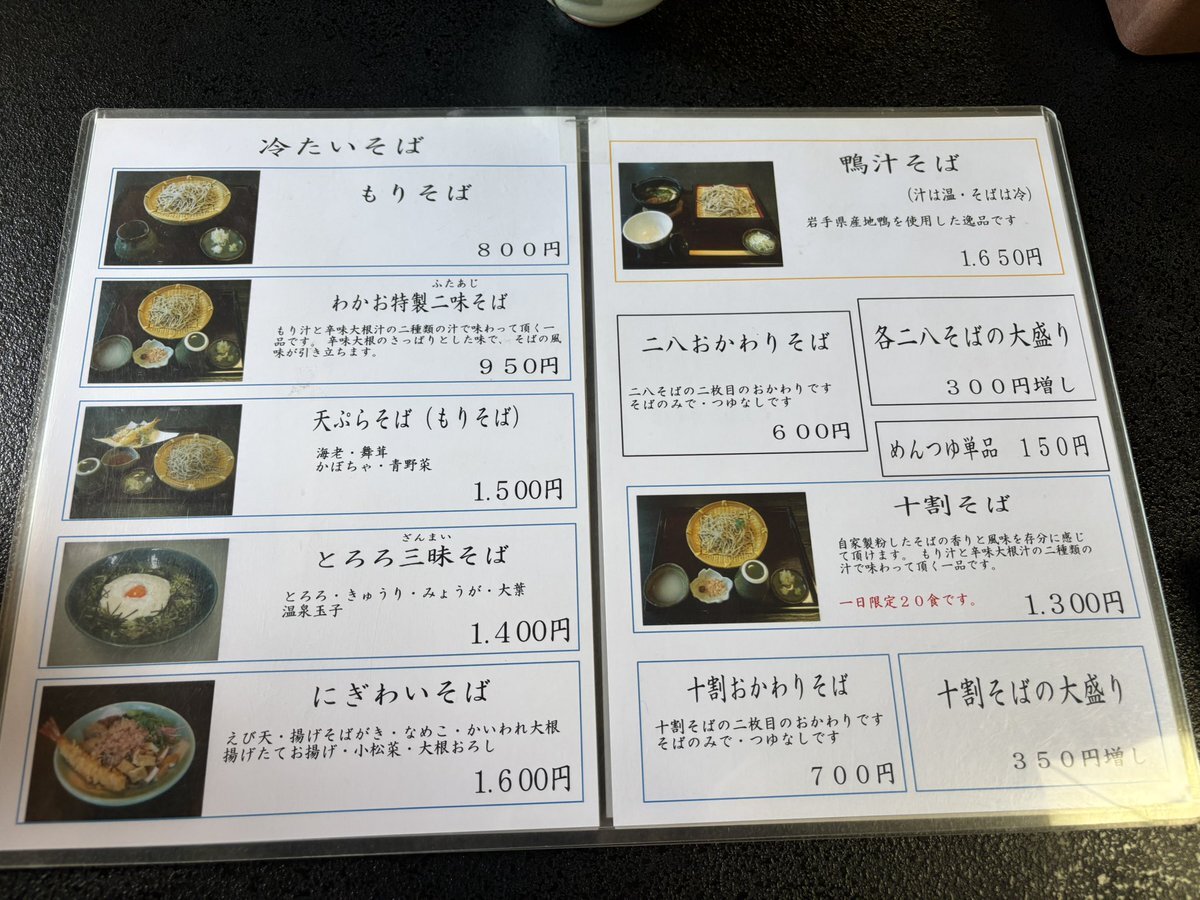 冷たいそば
もりそば
800円
ふたあじ
わかお特製二味そば
もり汁と辛味大根汁の二種類の汁で味わって頂く一
品です。辛味大根のさっぱりとした味で、そばの風
味が引き立ちます。
950円
天ぷらそば(もりそば)
海老・舞茸
かぼちゃ・青野菜
1.500円
ざんまい
とろろ三昧そば
とろろ・きゅうり・みょうが・大葉
温泉玉子
1.400円
にぎわいそば
えび天・揚げそばがき・なめこ・かいわれ大根
揚げたてお揚げ・小松菜・大根おろし
1.600円
鴨汁そば
(汁は温・そばは冷)
岩手県産地鴨を使用した逸品です
1.650円
二八おかわりそば
二八そばの二枚目のおかわりです
そばのみで・つゆなしです
600円
各二八そばの大盛り
300円増し
めんつゆ単品 150円
十割そば
自家製粉したそばの香りと風味を存分に感じ
て頂けます。もり汁と辛味大根汁の二種類の
汁で味わって頂く一品です。
一日限定20食です。
1.300円
十割おかわりそば
十割そばの二枚目のおかわりです
そばのみで・つゆなしです
700円
十割そばの大盛り
350円増し